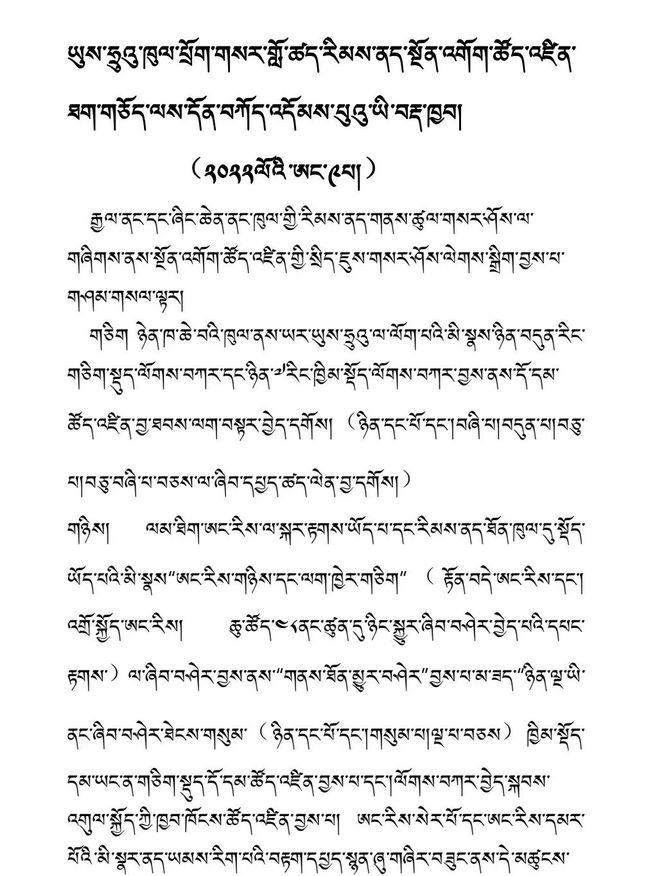 ཡུས་ཧྲུའུ་ཁུལ་པྲོག་གསར་གློ་ཚད་རིམས་ནད་སྔོན་འགོག་ཚོད་འཛིན་
ཐག་གཅོད་ལས་དོན་བཀོད་འདོམས་པུའུ་ཡི་བརྡ་ཁྱབ།
（༢༠༢༢ལོའི་ཨང་༩པ།）
རྒྱལ་ནང་དང་ཞིང་ཆེན་ནང་ཁུལ་གྱི་རིམས་ནད་གནས་ཚུལ་གསར་ཤོས་ལ་
གཞིགས་ནས་སྔོན་འགོག་ཚོད་འཛིན་གྱི་སྲིད་ཇུས་གསར་ཤོས་ལེགས་སྒྲིག་བྱས་པ་
གཤམ་གསལ་ལྟར།
གཅིག ཉེན་ཁ་ཆེ་བའི་ཁུལ་ནས་ཡར་ཡུས་ཧྲུའུ་ལ་ལོག་པའི་མི་སྣས་ཉིན་བདུན་རིང་
གཅིག་སྡུད་ལོགས་བཀར་དང་ཉིན་༧རིང་ཁྱིམ་སྡོད་ལོགས་བཀར་བྱས་ནས་དོ་དམ་
ཚོད་འཛིན་བྱ་ཐབས་ལག་བསྟར་བྱེད་དགོས། （ཉིན་དང་པོ་དང་།བཞི་པ།བདུན་པ།བཅུ་
པ།བཅུ་བཞི་པ་བཅས་ལ་ཞིབ་དཔྱད་ཚད་ལེན་བྱ་དགོས།）
གཉིས། ལམ་ཐིག་ཨང་རིས་ལ་སྐར་རྟགས་ཡོད་པ་དང་རིམས་ནད་ཐོན་ཁུལ་དུ་སྡོད་
ཡོད་པའི་མི་སྣས“ཨང་རིས་གཉིས་དང་ལག་ཁྱེར་གཅིག” （ རྟོན་བདེ་ཨང་རིས་དང་།
འགྲོ་སྐྱོད་ཨང་རིས། ཆུ་ཚོད་༤༨ནང་ཚུན་དུ་ཉིང་སྐྱུར་ཞིབ་བཤེར་བྱེད་པའི་དཔང་
རྟགས་）ལ་ཞིབ་བཤེར་བྱས་ནས་“གནས་ཐོན་མྱུར་བཤེར”བྱས་པ་མ་ཟད་“ཉིན་ལྔ་ཡི་
ནང་ཞིབ་བཤེར་ཐེངས་གསུམ་（ཉིན་དང་པོ་དང་།གསུམ་པ།ལྔ་པ་བཅས） ཁྱིམ་སྡོད་
དམ་ཡང་ན་གཅིག་སྡུད་དོ་དམ་ཚོད་འཛིན་བྱས་པ་དང་།ལོགས་བཀར་བྱེད་སྐབས་
འགུལ་སྐྱོད་ཀྱི་ཁྱབ་ཁོངས་ཚོད་འཛིན་བྱས་པ། ཨང་རིས་སེར་པོ་དང་ཨང་རིས་དམར་
པོའི་མི་སྣར་ནད་ཡམས་རིག་པའི་བརྟག་དཔྱད་སྙན་ཞུ་གཞིར་བཟུང་ནས་དེ་མཚུངས་